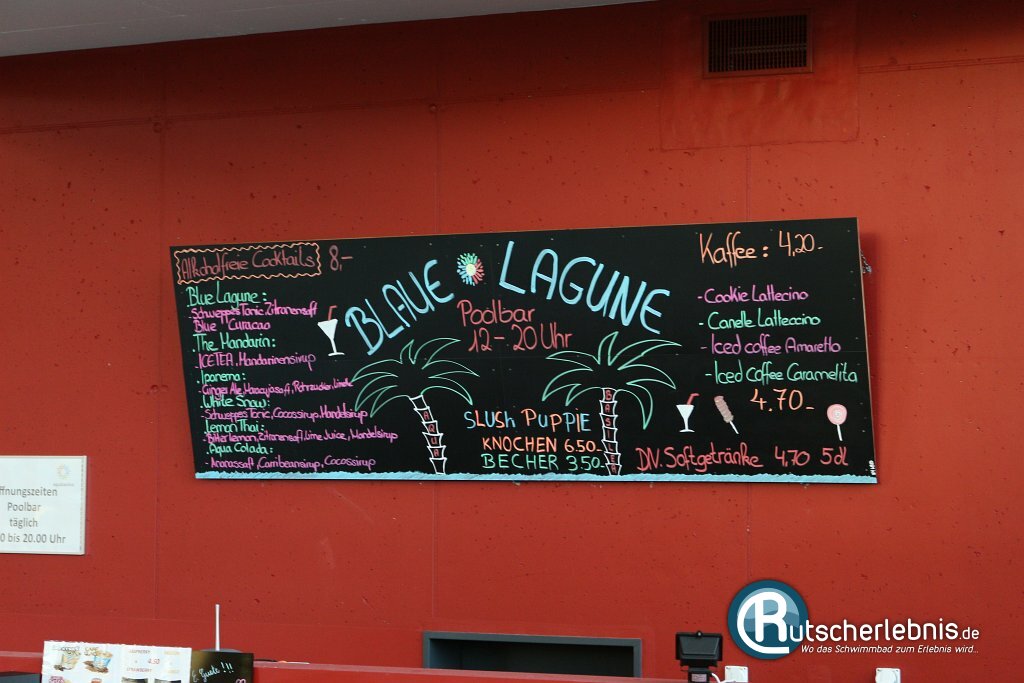 Alkoholfreie Cocktails 8,-
Blue Lagune:
Schweppes Tonic, Zitronensaft
Blue Curacao
The Mandarin:
- ICETEA, Mandarinensirup
Ipanema:
Ginger Ale, Maracujasaft, Rohrzucker, Limette
White Snow:
- Schweppes Tonic, Cocossirup, Mandelsirup
Lemon Thai:
- Bitterlemon, Zitronensaft, Lime Juice, Mandelsirup
Aqua Colada:
- Ananassaft, Carribeansirup, Cocossirup
BLAUE LAGUNE
Poolbar
12-20 Uhr
SLUSH PUPPIE
KNOCHEN 6.50.-
BECHER 3.50.-
AQUA
BASILEA
Kaffee: 4,20-
- Cookie Lattecino
- Canelle Latteccino
- Iced coffee Amaretto
- Iced coffee Caramelita
4.70-
DIV. Softgetränke 4,70 5dl
ffnungszeiten
Poolbar
täglich
0 bis 20.00 Uhr
Rutscherlebnis.de
Wo das Schwimmbad zum Erlebnis wird..